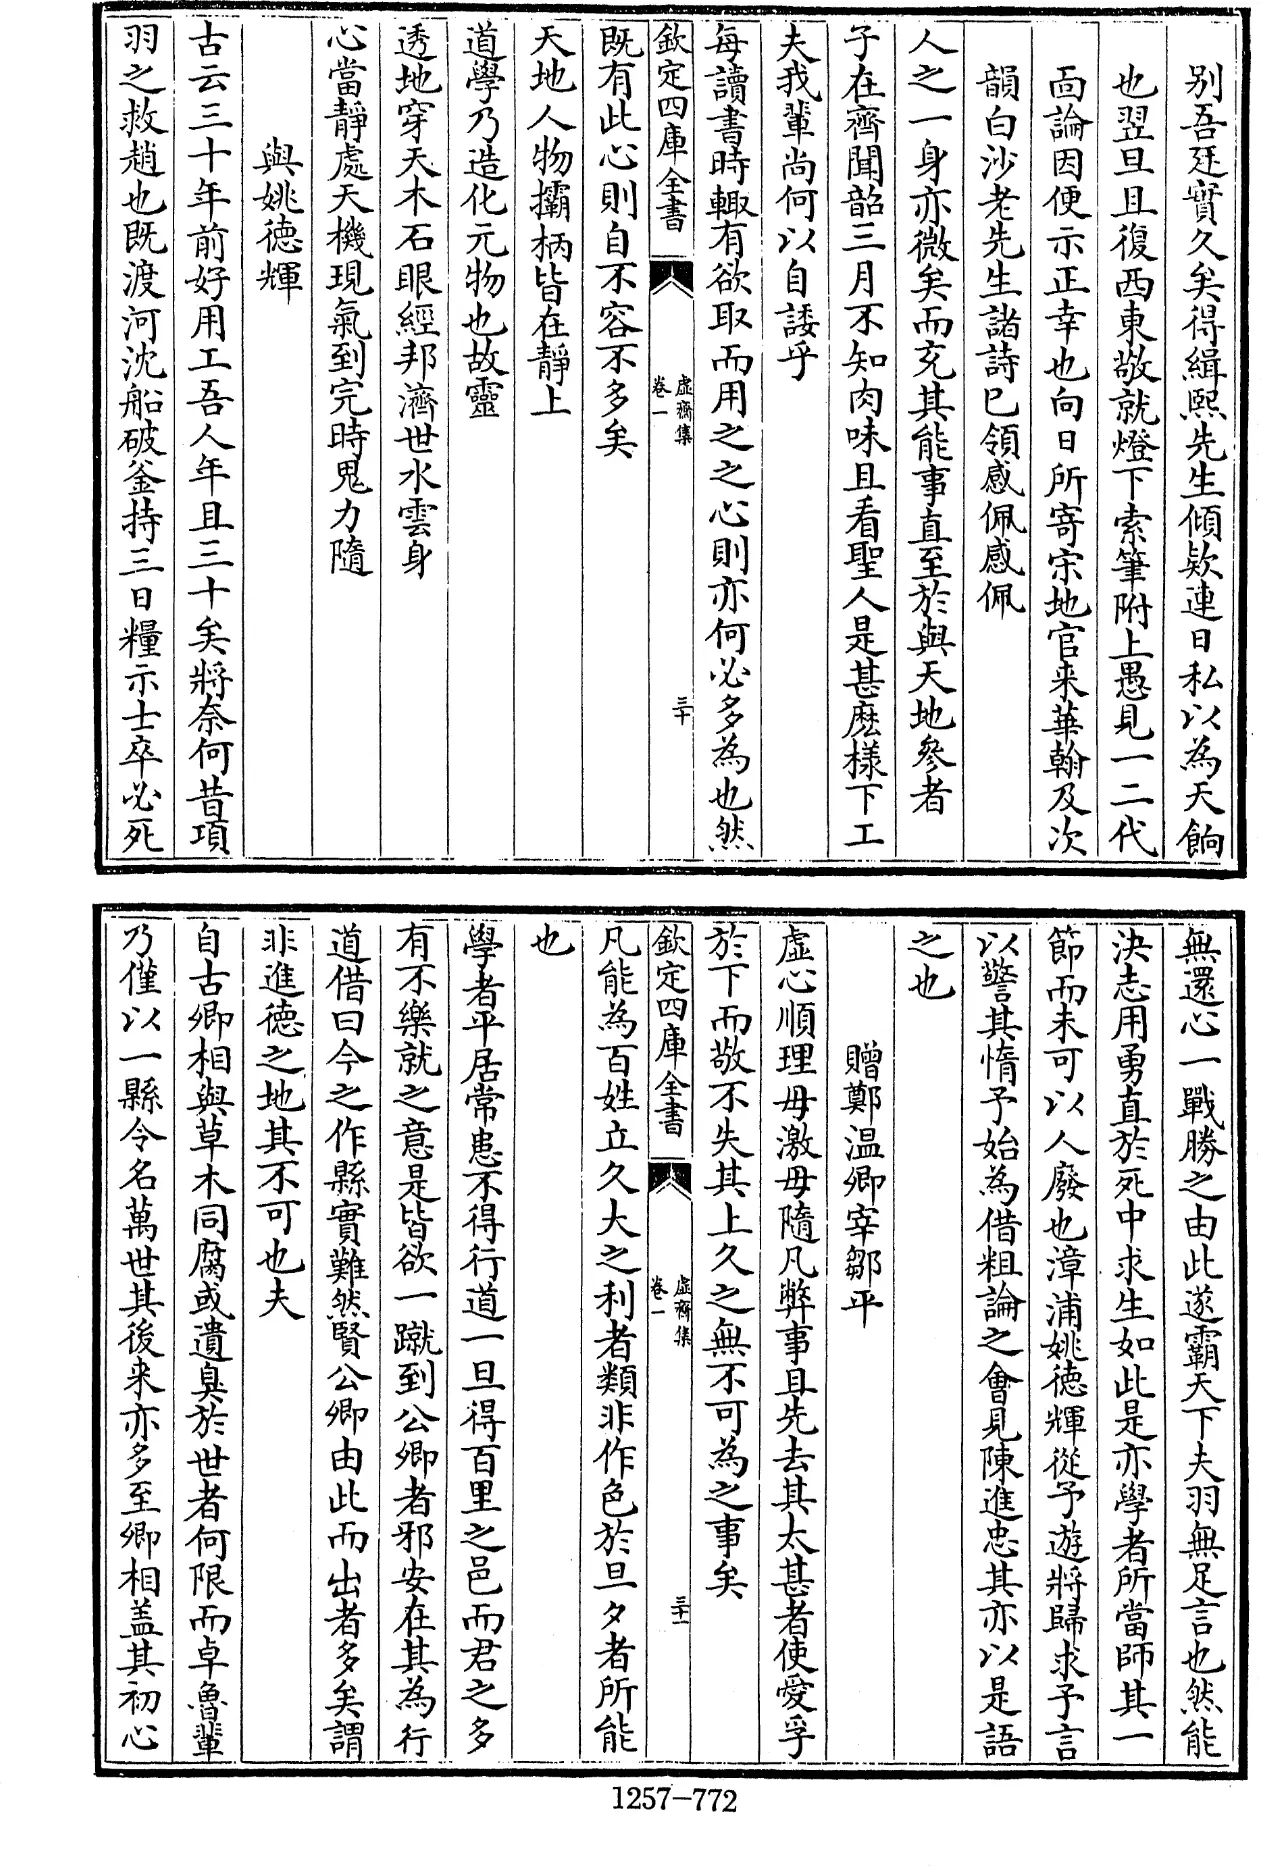 别吾廷實久矣得緝熙先生傾欵連日私以為天餉
也翌旦且復西東敬就燈下索筆附上愚見一二代
面論因便示正幸也向日所寄宗地官来華翰及次
韻白沙老先生諸詩已領感佩感佩
人之一身亦微矣而充其能事直至於與天地參者
子在齊聞韶三月不知肉味且看聖人是甚麽様下工
夫我輩尚何以自諉乎
每讀書時輙有欲取而用之之心則亦何必多為也然
欽定四庫全書
虚齋集
卷一
三十
既有此心則自不容不多矣
天地人物攟柄皆在靜上
道學乃造化元物也故靈
透地穿天木石眼經邦濟世水雲身
心當靜處天機現氣到完時鬼力隨
與姚德輝
古云三十年前好用工吾人年且三十矣將奈何昔項
羽之救趙也既渡河沈船破釜持三日糧示士卒必死
無還心一戰勝之由此遂霸天下夫羽無足言也然能
決志用勇直於死中求生如此是亦學者所當師其一
節而未可以人廢也漳浦姚德輝從予遊將歸求予言
以警其惰予始為借粗論之㑹見陳進忠其亦以是語
之也
贈鄭温卿宰鄒平
虚心順理毋激毋隨凡弊事且先去其太甚者使愛孚
於下而敬不失其上久之無不可為之事矣
欽定四庫全書
虚齋集
卷一
三十一
凡能為百姓立久大之利者類非作色於旦夕者所能
也
學者平居常患不得行道一旦得百里之邑而君之多
有不樂就之意是皆欲一蹴到公卿者邪安在其為行
道借曰今之作縣實難然賢公卿由此而出者多矣謂
非進德之地其不可也夫
自古卿相與草木同腐或遺臭於世者何限而卓魯輩
乃僅以一縣令名萬世其後来亦多至卿相盖其初心
1257-772